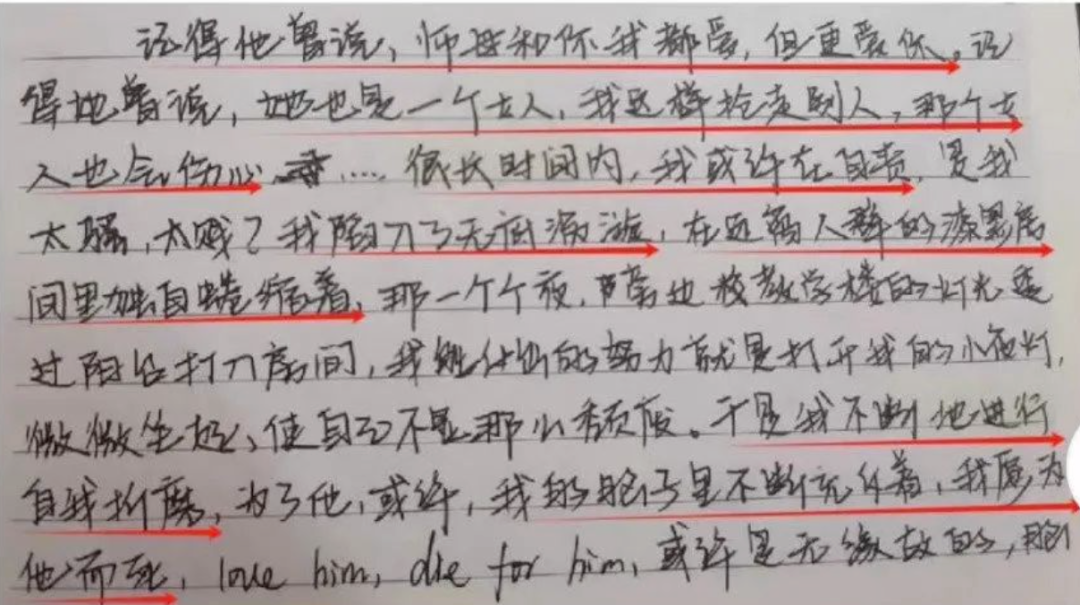 记得他曾说，师母和你我都爱，但更爱你。记
得她曾说，她也是一个女人，我这样抢走别人，那个女
人也会伤心……很长时间内，我或许在自责，是我
太骚，太贱？我陷入了无底漩涡，在远离人群的漆黑房
间里独自蜷缩着，那一个个夜，隔壁校教学楼的灯光透
过阳台打入房间，我能付出的努力就是打开我的小夜灯，
微微坐起，使自己不显那么颓废。于是我不断地进行
自我折磨，为了他，或许，我的脑子里不断充斥着，我愿为
他而死，love him, die for him, 或许是无缘故的，脑